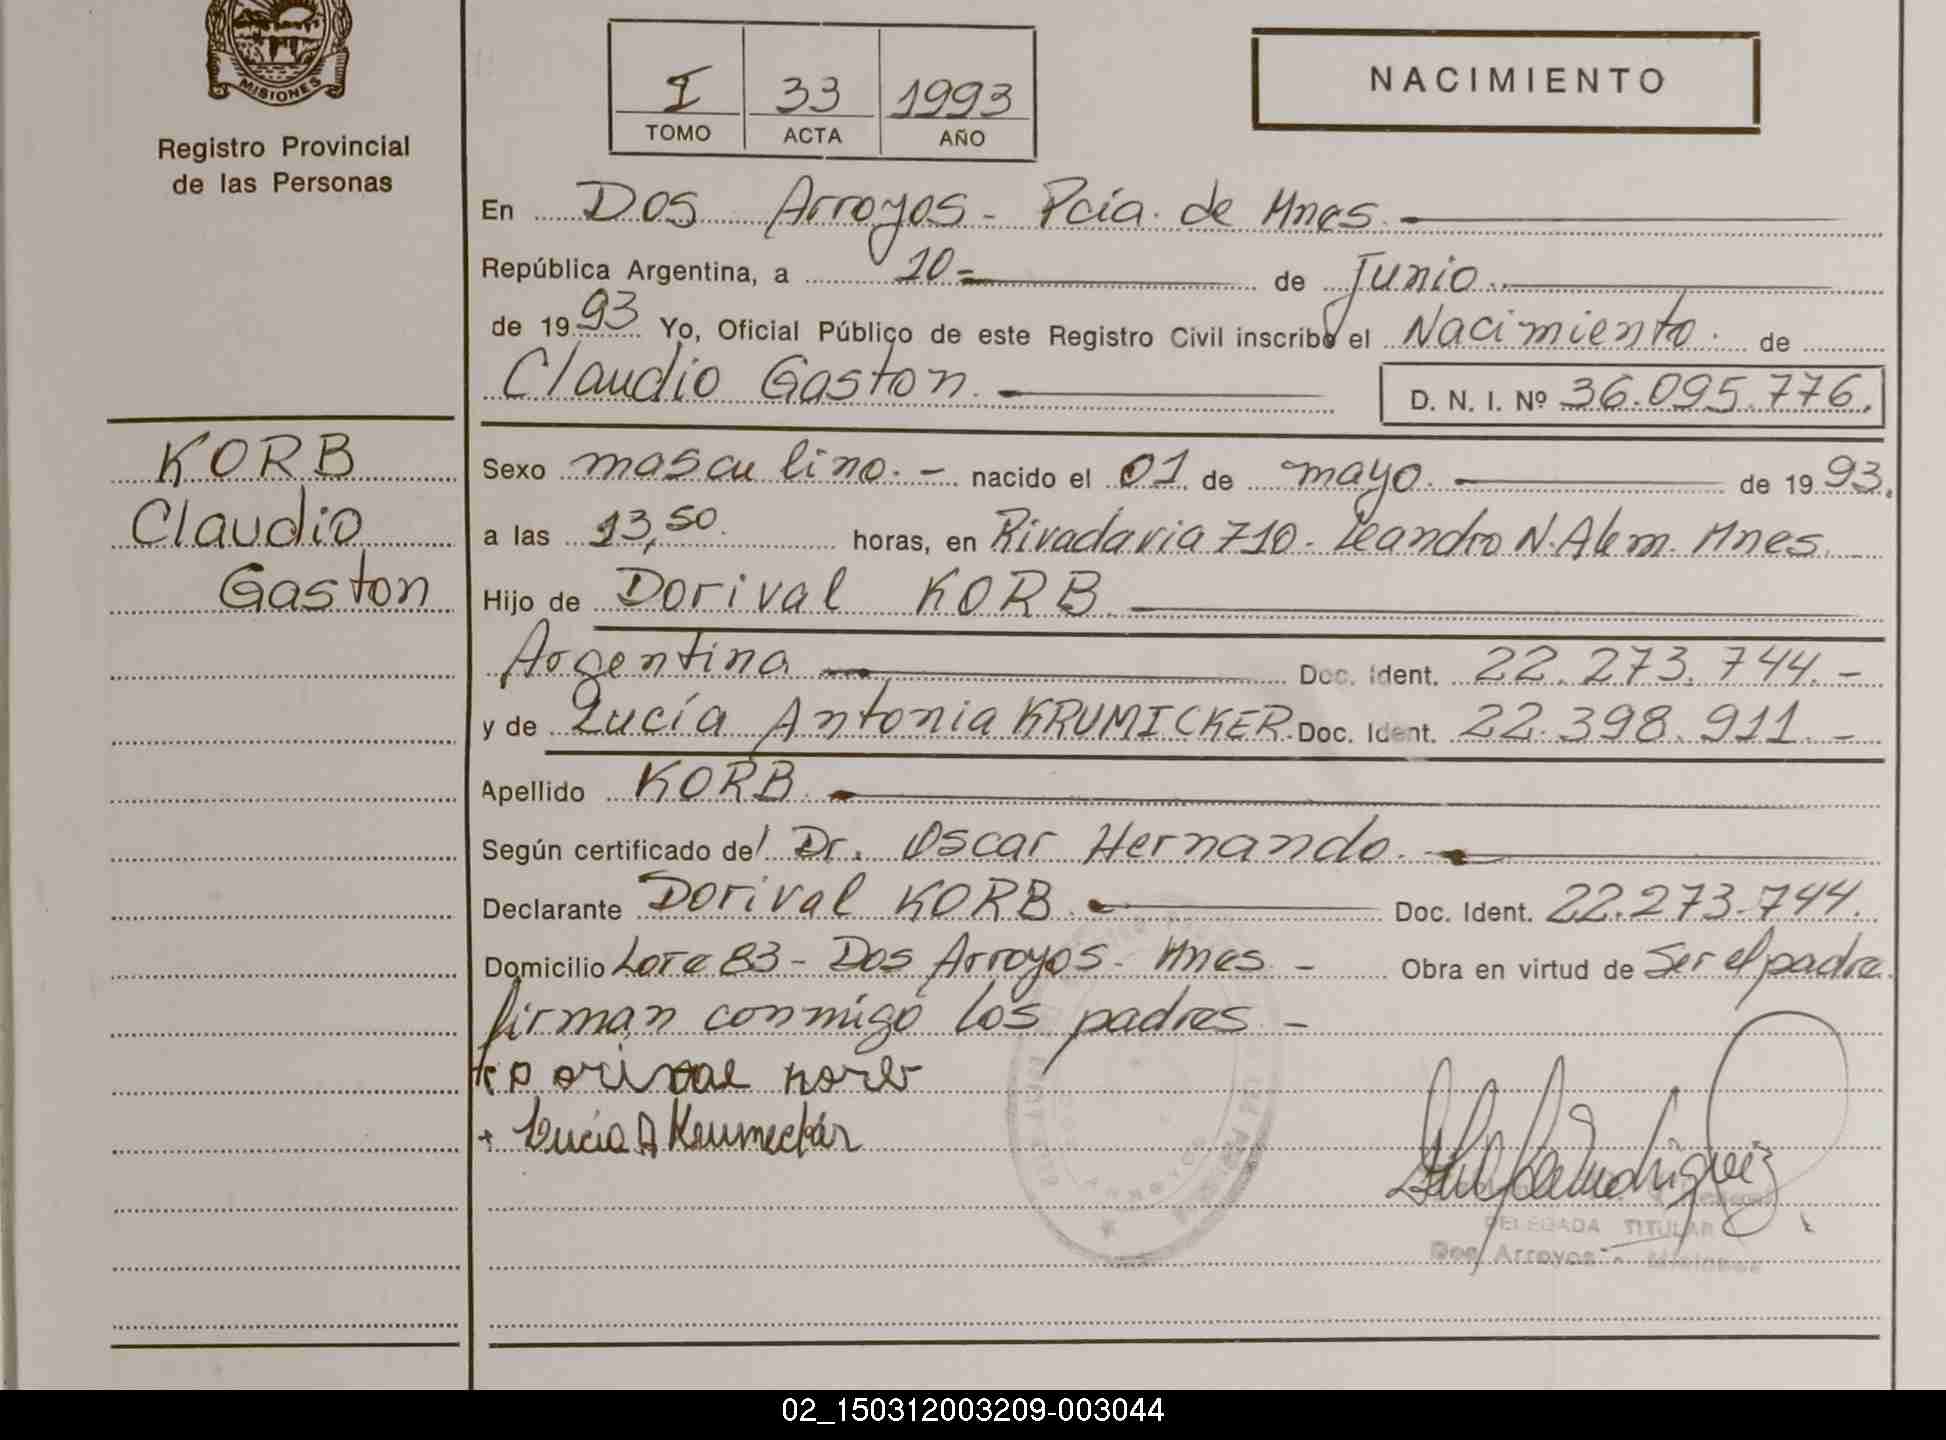 MISIONES
Registro Provincial
de las Personas
I 33 1993
TOMO ACTA AÑO
NACIMIENTO
En Dos Arroyos - Pcia. de Mnes.
República Argentina, a 10 = de Junio
de 1993 Yo, Oficial Público de este Registro Civil inscribo el Nacimiento. de
Claudio Gaston.
D. N. I. Nº 36.095.776.
KORB
Claudio
Gaston
Sexo masculino. - nacido el 01 de mayo. de 1993.
a las 13,50. horas, en Rivadavia 710 - Leandro N. Alem. Mnes.
Hijo de Dorival KORB.
Argentina Doc. Ident. 22.273.744.-
y de Lucía Antonia KRUMICKER. Doc. Ident. 22.398.911.-
Apellido KORB.
Según certificado del Dr. Oscar Hernando.
Declarante Dorival KORB. Doc. Ident. 22.273.744.
Domicilio Lote 83 - Dos Arroyos - Mnes - Obra en virtud de Ser el padre.
firman conmigo los padres -
Dorival Korb
+ Lucia A
DELEGADA TITULAR
Dos Arroyos - Misiones
02_150312003209-003044